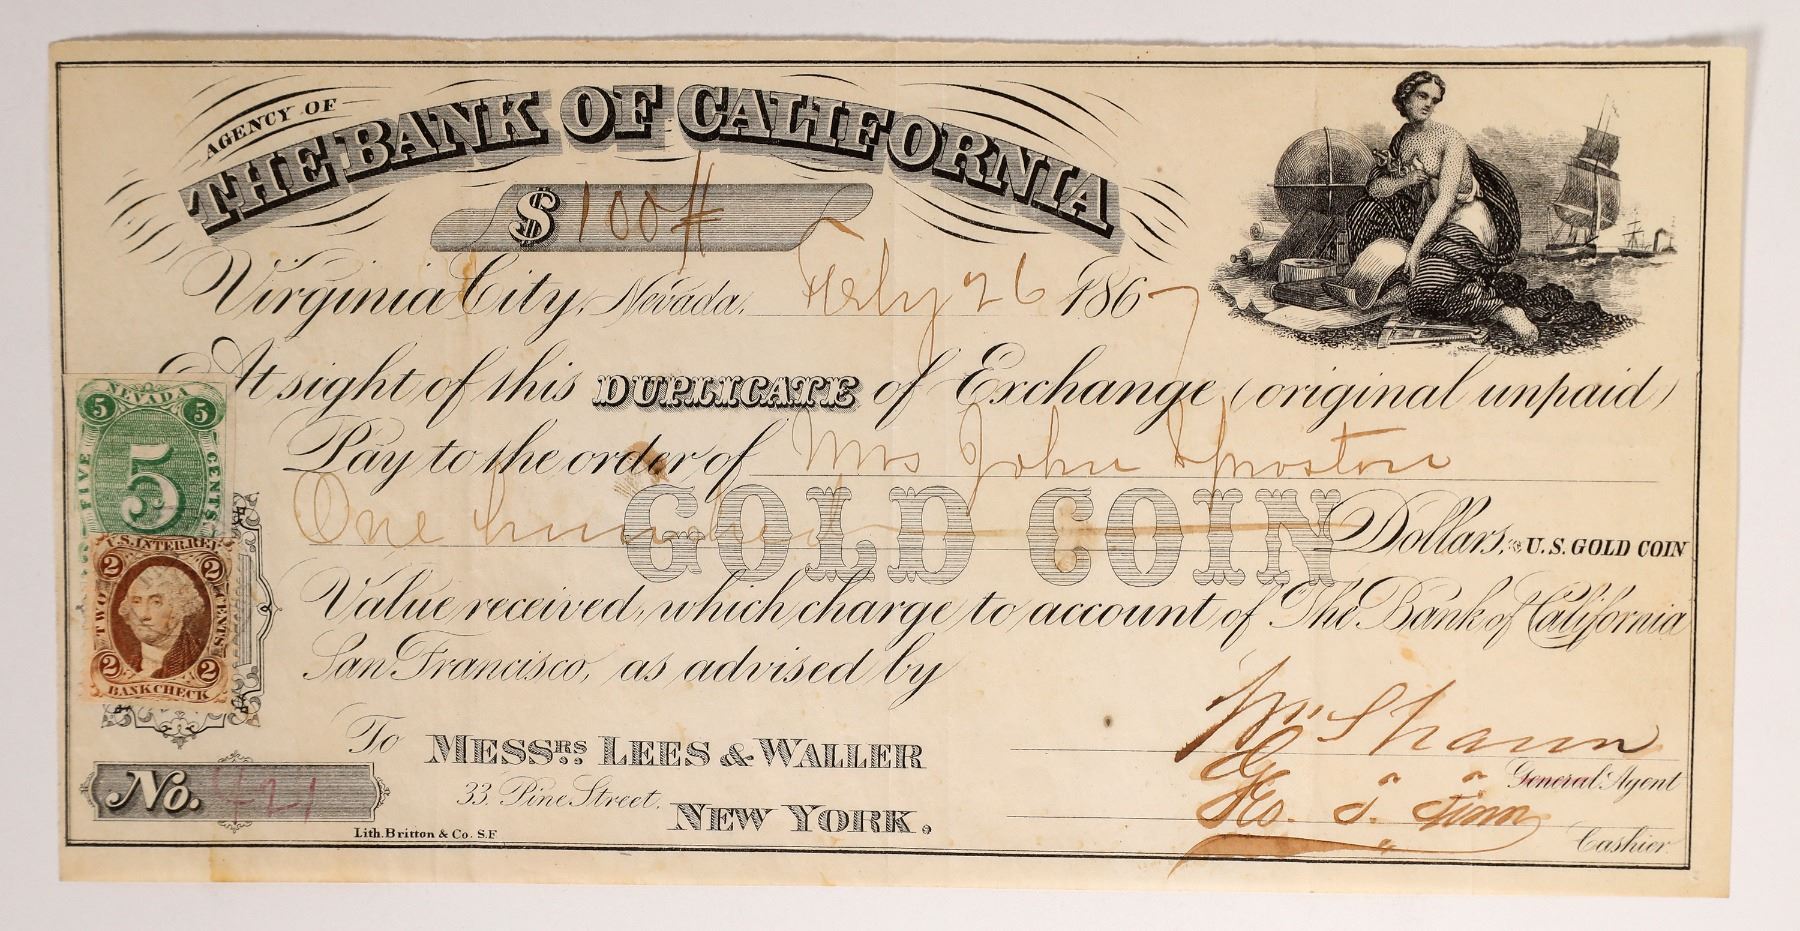 AGENCY OF
THE BANK OF CALIFORNIA
$ 100 #
Virginia City, Nevada, Feby 26 1867
At sight of this DUPLICATE of Exchange (original unpaid)
Pay to the order of Mrs John
One hundred Dollars, U.S. GOLD COIN
GOLD COIN
Value received, which charge to account of The Bank of California
San Francisco, as advised by
To MESSRS. LEES & WALLER
33. Pine Street,
NEW YORK.
General Agent
Geo.
Cashier
No. 421
Lith. Britton & Co. S.F
NEVADA
5 5
FIVE 5 CENTS
U.S. INTER. REV.
2 2
TWO CENTS
2 2
BANK CHECK